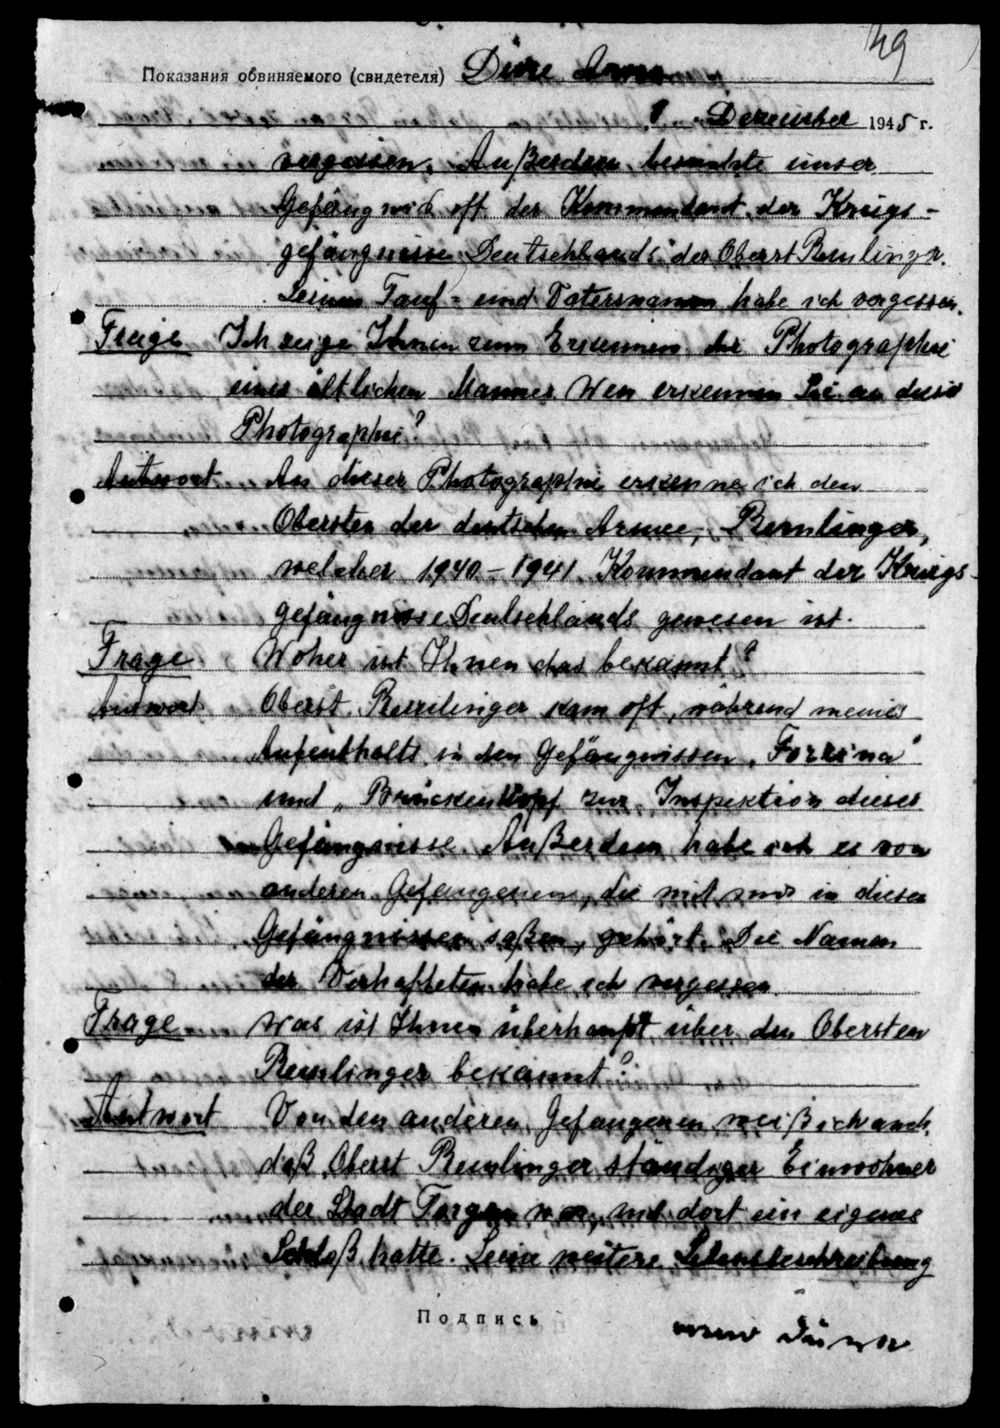 49
Показания обвиняемого (свидетеля) Düre Arno
Dezember 1945 г.
vergessen. Außerdem besuchte unser
Gefängnis oft der Kommandant der Kriegs-
gefängnisse Deutschlands der Oberst Remlinger.
Seinen Tauf- und Vatersnamen habe ich vergessen.
Frage Ich zeige Ihnen zum Erkennen die Photographie
eines ältlichen Mannes. Wen erkennen Sie an dieser
Photographie?
Antwort An dieser Photographie erkenne ich den
Obersten der deutschen Armee, Remlinger,
welcher 1940-1941 Kommandant der Kriegs-
gefängnisse Deutschlands gewesen ist.
Frage Woher ist Ihnen das bekannt?
Antwort Oberst Remlinger kam oft, während meines
Aufenthalts in den Gefängnissen „Forzina"
und „Brückenkopf zur Inspektion dieser
Gefängnisse. Außerdem habe ich es von
anderen Gefangenen, die mit mir in diesen
Gefängnissen saßen, gehört. Die Namen
der Verhafteten habe ich vergessen.
Frage Was ist Ihnen überhaupt über den Obersten
Remlinger bekannt?
Antwort Von den anderen Gefangenen weiß ich auch,
daß Oberst Remlinger ständiger Einwohner
der Stadt Torgau war, und dort ein eigenes
Schloß hatte. Seine weitere Lebensbeschreibung
Подпись